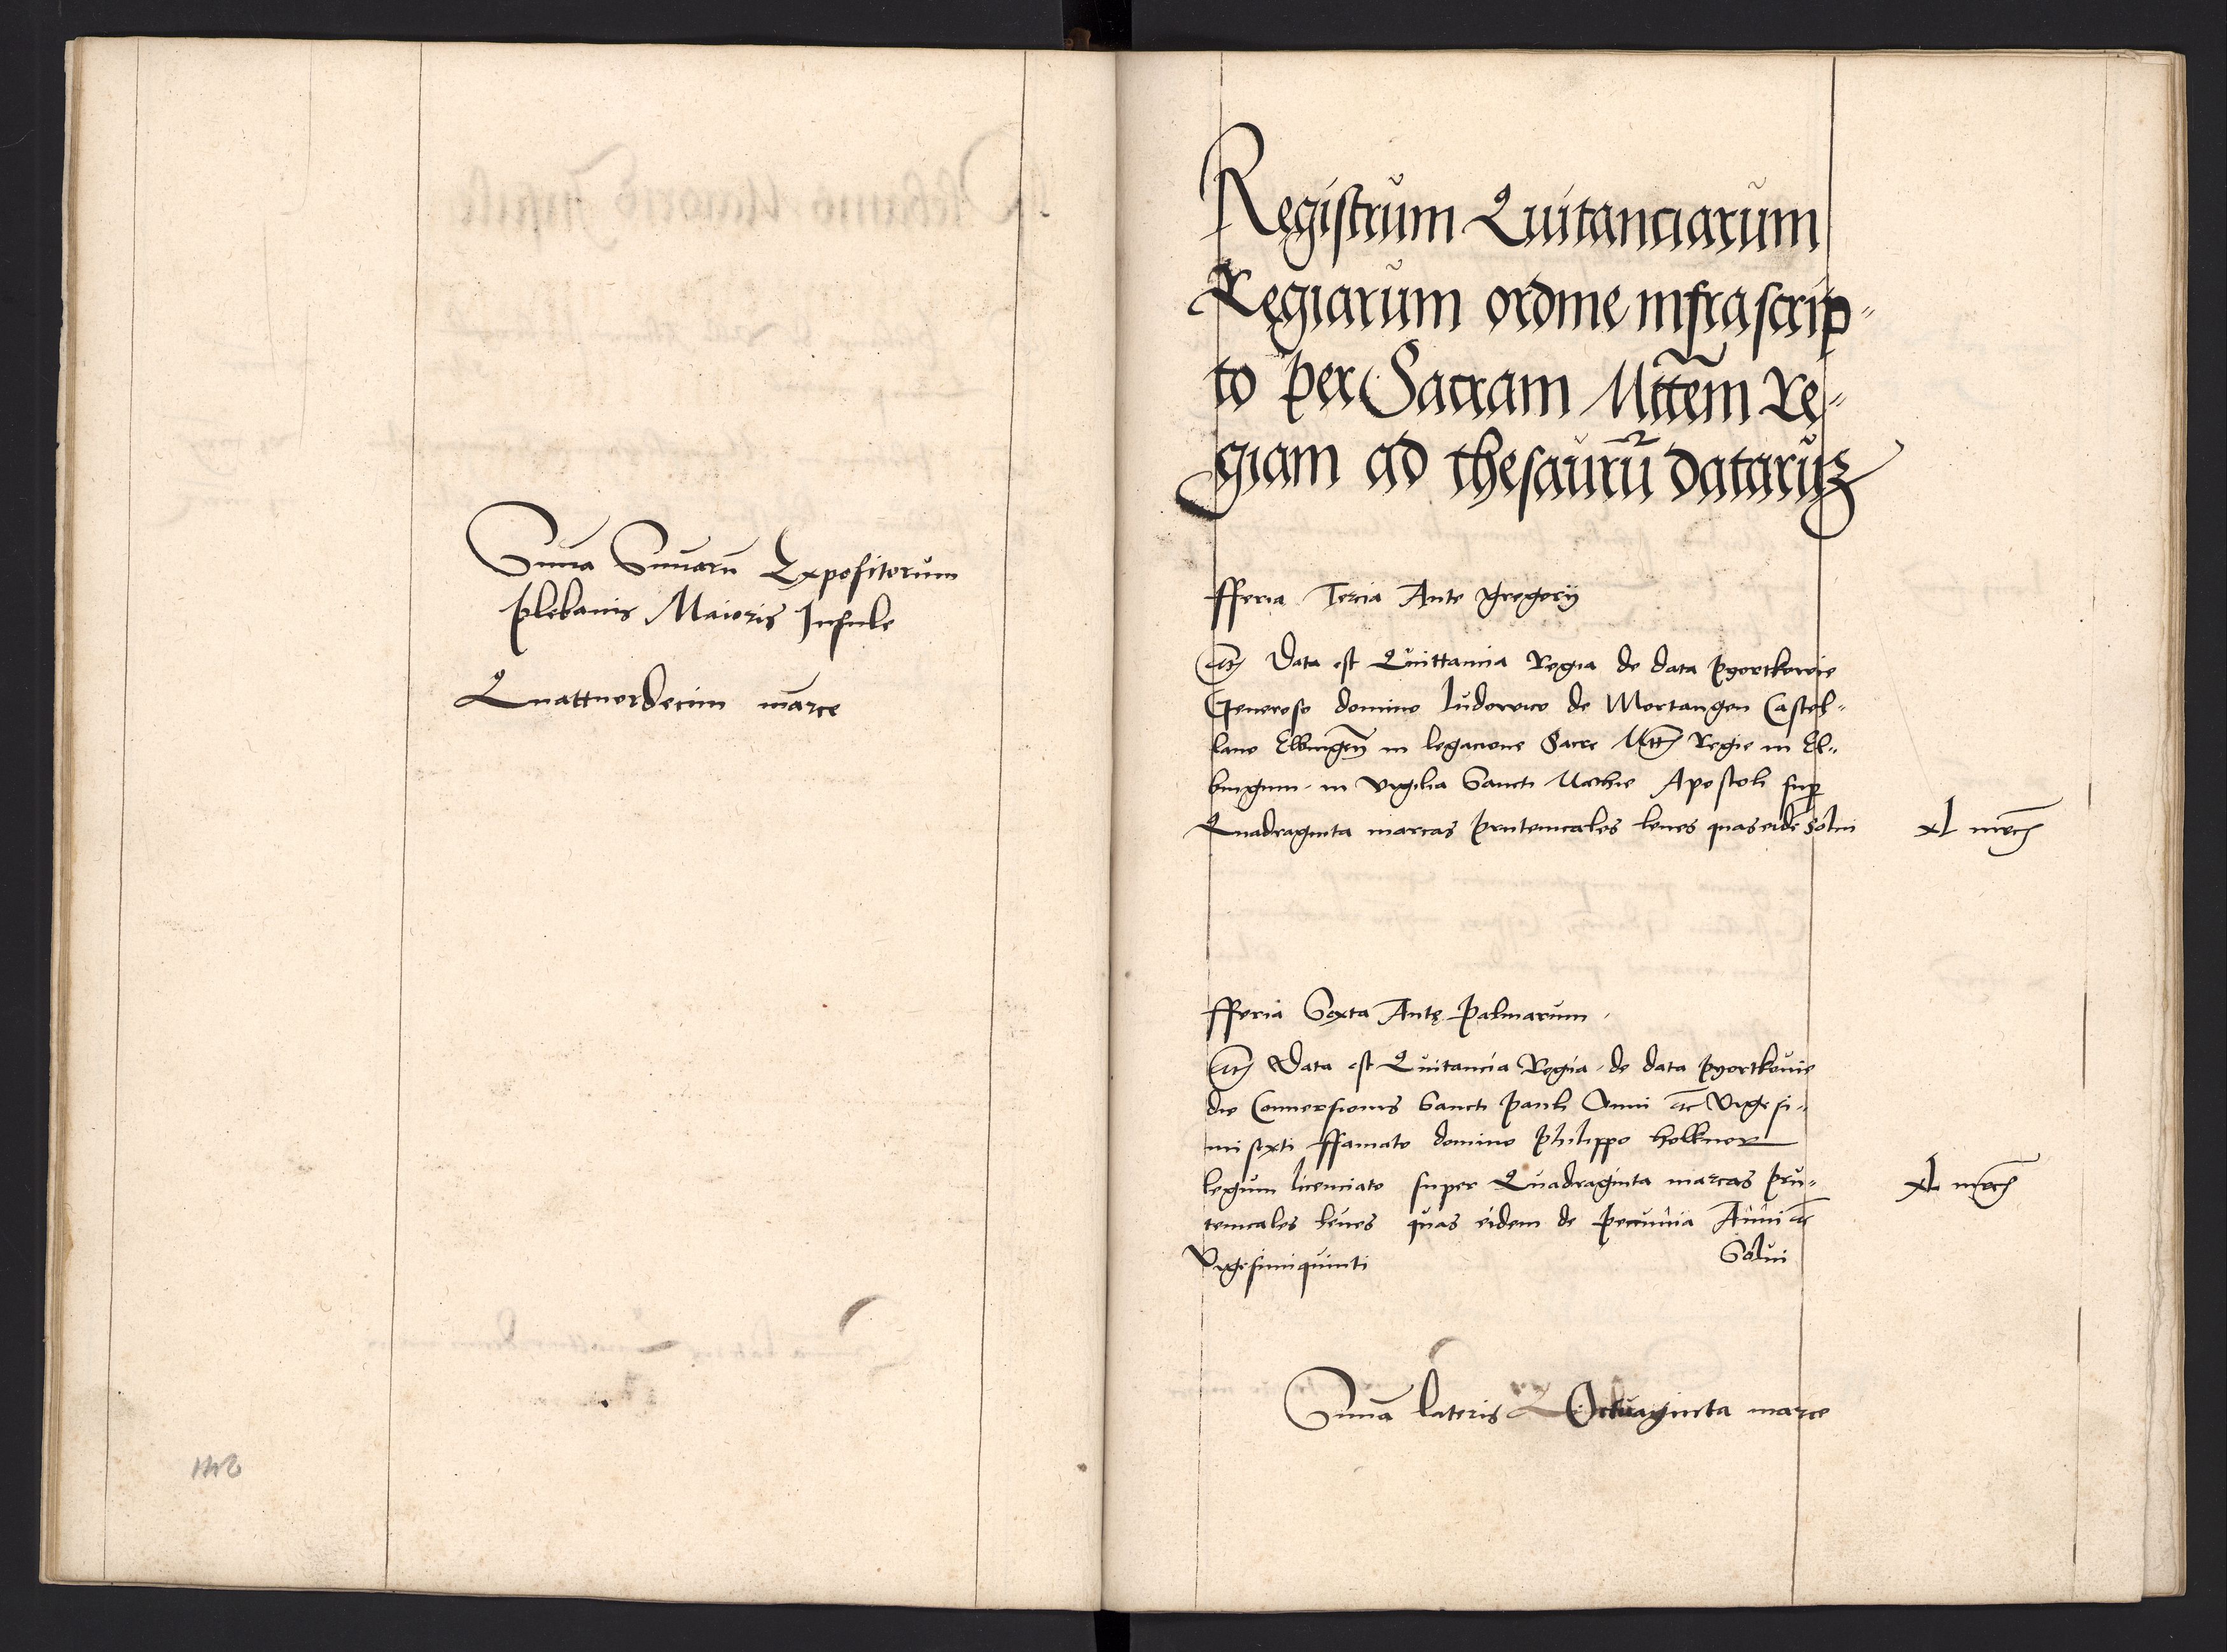 Sum̄a Sum̄arū Expositorum
plebanis Maioris Insule
Quattuordecim marce
Registrum Quitanciarum
Regiarum ordine infrascrip-
to per Sacram Mttēm Re-
giam ad thesaurū dataruʒ
fferia Tercia Ante Gregorij
Itē Data est Quittancia Regia de data pyortkowie
Generoso domino ludowico de Mortangen Castel-
lano Elbingeñ in legacione Sacre Mttis Regie in El-
bingum in vigilia Sancti Mathie Apostoli sup
Quadraginta marcas prutenicales leues quas eidē Solui
xl mrcs
fferia Sexta Ante palmarum
Itē Data est Quitancia Regia de data pyortkouie
die Conuersionis Sancti pauli Anni etc Vigesi-
mi sexti ffamato domino philippo holkner
legum licenciato super Quadraginta marcas pru-
tenicales leues quas eidem de pecunia Anni etc
Vigesimiquinti Solui
xL mrcs
Sum̄a lateris Octuaginta marce